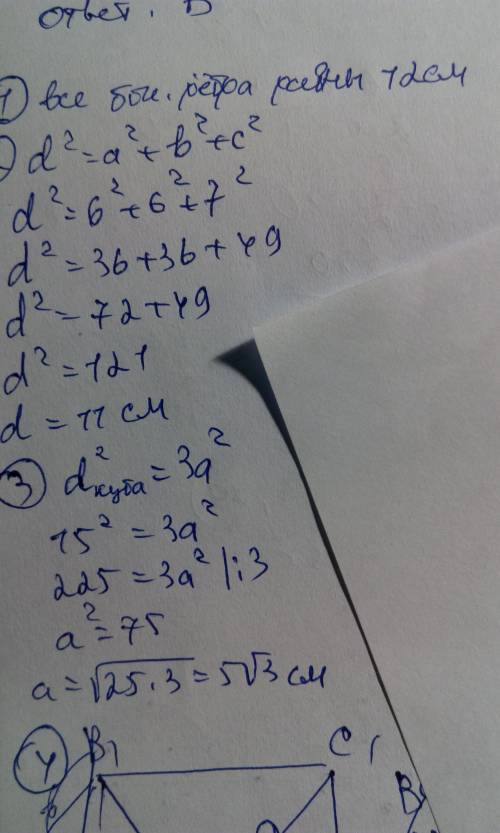 ответ. В
1) все бок. рёбра равны 12см
d²=a²+b²+c²
d²=6²+6²+7²
d²=36+36+49
d²=72+49
d²=121
d=11 см
3) d²куба=3a²
15²=3a²
225=3a² |:3
a²=75
a=√25·3=5√3 см
4) B1 C1 B1